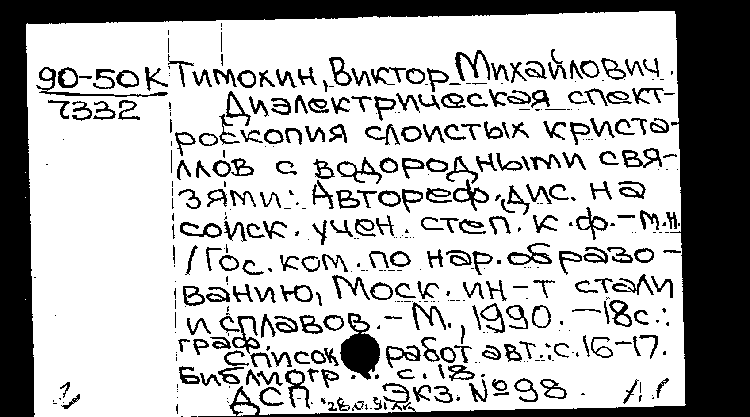 90-50К Тимохин, Виктор Михайлович.
7332
Диэлектрическая спект-
роскопия слоистых криста-
ллов с водородными свя-
зями: Автореф. дис. на
соиск. учен. степ. к.ф.-м.н.
/Гос. ком. по нар. образо-
ванию, Моск. ин-т стали
и сплавов. - М., 1990. - 18с.:
граф.
Список работ авт.: с.16-17.
Библиогр.: с.18.
ДСП Экз. №98.